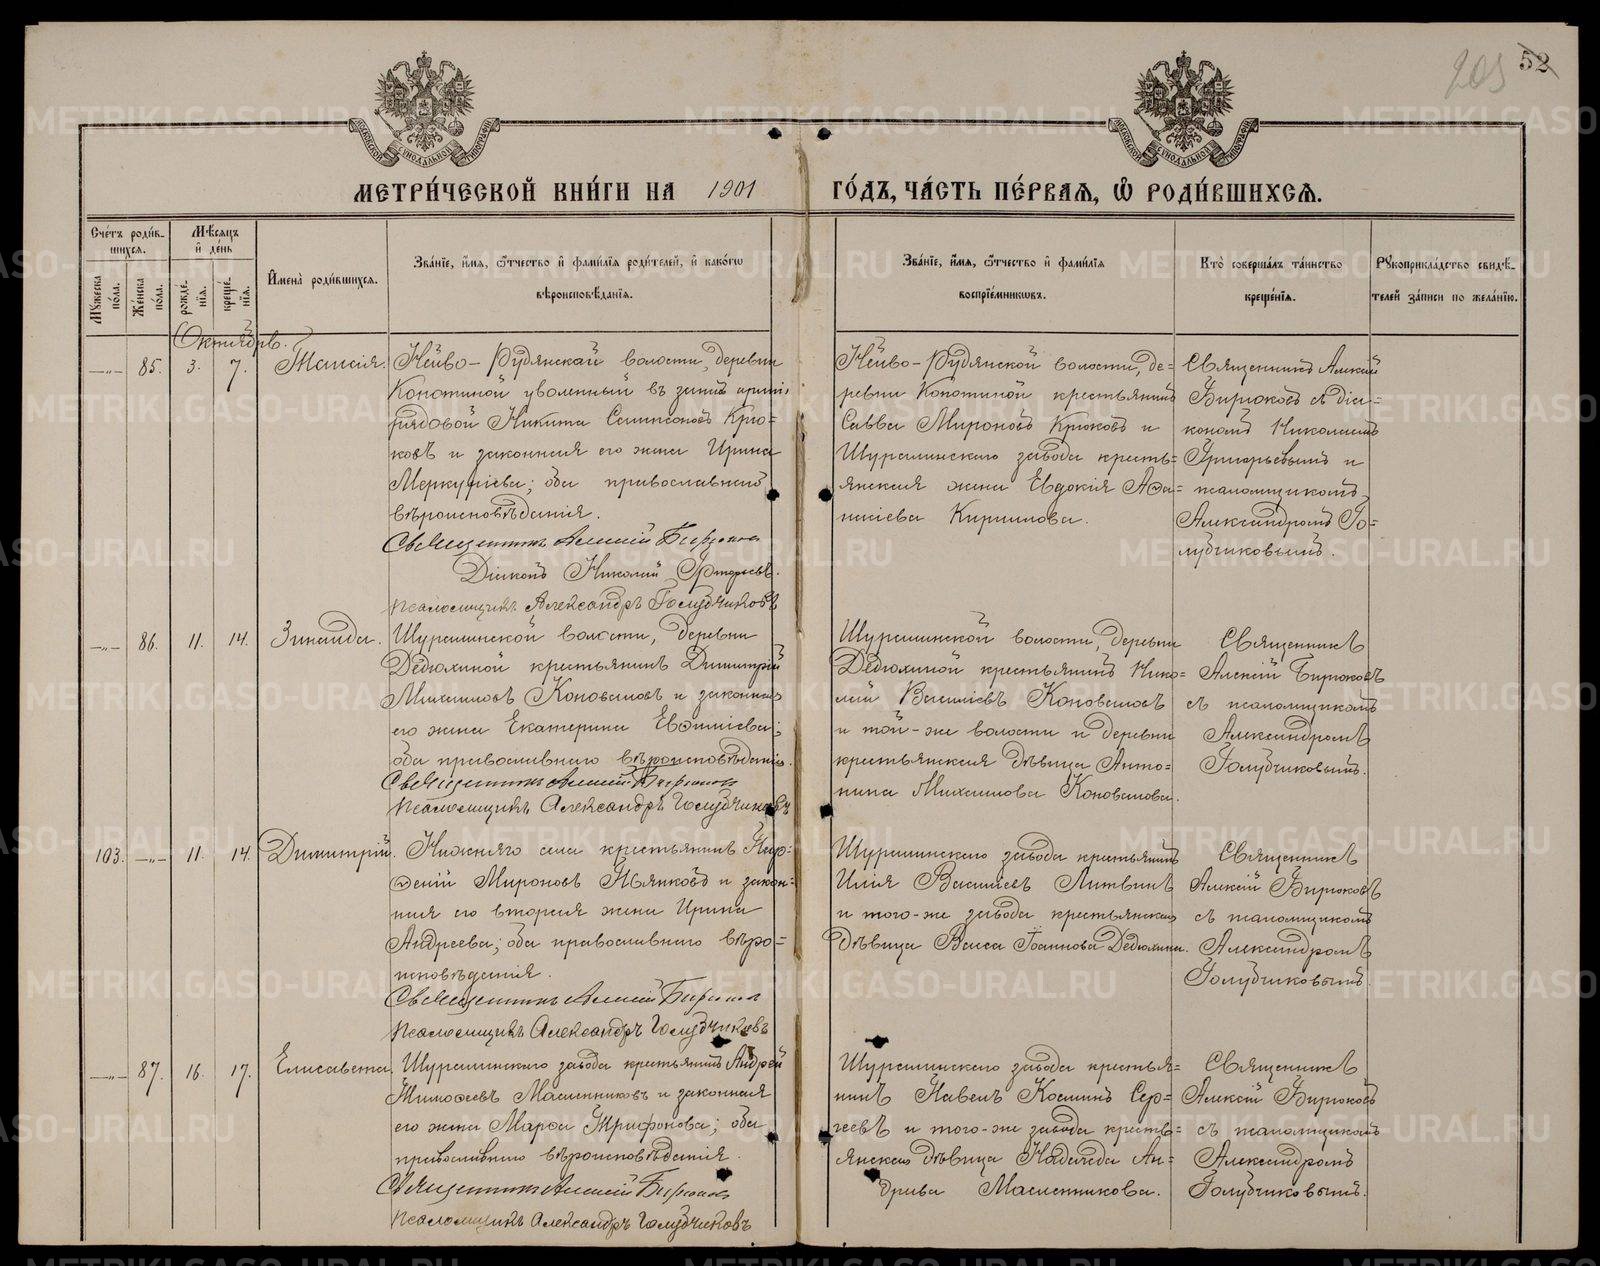 203
52
МЕТРИ́ЧЕСКОЙ КНИ́ГИ НА 1901 ГО́ДЪ, ЧА́СТЬ ПЕ́РВАѦ, Ѡ҆ РОДИ́ВШИХСѦ.
Сче́тъ роди́в-
шихсѧ.
Мꙋ́жеска по́ла.
Же́нска по́ла.
Мѣ́сѧцъ
и҆ де́нь
рожде́-
нїѧ.
креще́-
нїѧ.
И҆мена̀ роди́вшихсѧ.
Зва́нїе, и҆́мѧ, ѻ҆́тчество и҆ фами́лїѧ роди́телей, и҆ како́гѡ
вѣроисповѣ́данїѧ.
Зва́нїе, и҆́мѧ, ѻ҆́тчество и҆ фами́лїѧ
воспрїе́мникѡвъ.
Кто̀ соверша́лъ та́инство
креще́нїѧ.
Рꙋкоприкла́дство свидѣ́-
телей за́писи по жела́нїю.
Октябрь.
—„— 85. 3. 7. Таисія.
Нейво-Рудянской волости, деревни
Конотиной уволенный въ запасъ арміи,
рядовой Никита Самсоновъ Крю=
ковъ и законная его жена Ирина
Меркуріева; оба православнаго
вѣроисповѣданія.
Священникъ Алексій Бирюковъ
Діаконъ Николай Григорьевъ.
Псаломщикъ Александръ Голубчиковъ
Нейво-Рудянской волости, де=
ревни Конотиной крестьянинъ
Савва Мироновъ Крюковъ и
Шуралинскаго завода кресть=
янская жена Евдокія Аѳа=
насіева Кириллова.
Священникъ Алексій
Бирюковъ съ діа=
кономъ Николаемъ
Григорьевымъ и
псаломщикомъ
Александромъ Го=
лубчиковымъ.
—„— 86. 11. 14. Зинаида.
Шуралинской волости, деревни
Дедюхиной крестьянинъ Димитрій
Михаиловъ Коноваловъ и законная
его жена Екатерина Евѳиміева;
оба православнаго вѣроисповѣданія.
Священникъ Алексій Бирюковъ
Псаломщикъ Александръ Голубчиковъ
Шуралинской волости, деревни
Дедюхиной крестьянинъ Нико=
лай Василіевъ Коноваловъ
и той-же волости и деревни
крестьянская дѣвица Анто=
нина Михаилова Коновалова.
Священникъ
Алексій Бирюковъ
съ псаломщикомъ
Александромъ
Голубчиковымъ.
103. —„— 11. 14. Димитрій.
Нижняго села крестьянинъ Пар=
ѳеній Мироновъ Пьянковъ и закон=
ная его вторая жена Ирина
Андреева; оба православнаго вѣро=
исповѣданія.
Священникъ Алексій Бирюковъ
Псаломщикъ Александръ Голубчиковъ
Шуралинскаго завода крестьянинъ
Илія Василіевъ Литвинъ
и того-же завода крестьянская
дѣвица Васса Іоаннова Дедюхина.
Священникъ
Алексій Бирюковъ
съ псаломщикомъ
Александромъ
Голубчиковымъ
—„— 87. 16. 17. Елисавета.
Шуралинскаго завода крестьянинъ Андрей
Тимоѳеевъ Масленниковъ и законная
его жена Марѳа Трифонова; оба
православнаго вѣроисповѣданія.
Священникъ Алексій Бирюковъ
Псаломщикъ Александръ Голубчиковъ
Шуралинскаго завода крестья=
нинъ Павелъ Косминъ Сер=
геевъ и того-же завода кресть=
янская дѣвица Надежда Ан=
дреева Масленникова.
Священникъ
Алексій Бирюковъ
съ псаломщикомъ
Александромъ
Голубчиковымъ.
METRIKI.GASO-URAL.RU